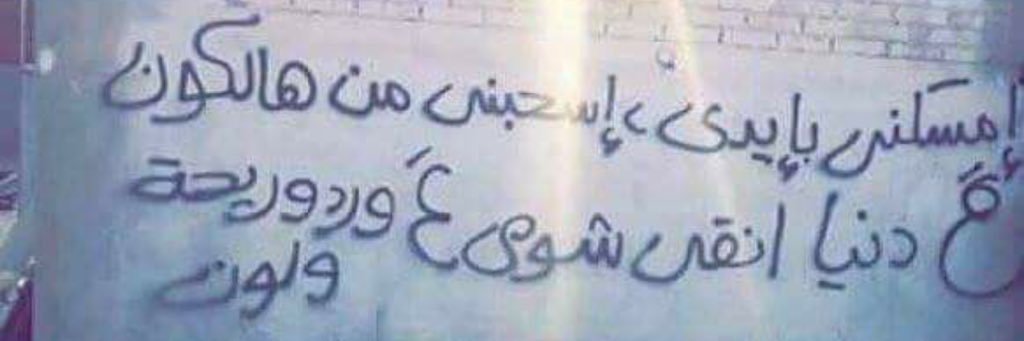 إمسكني بإيدي، إسحبني من هالكون
عَ دنيا انقى شوي عَ ورد وريحة
ولون